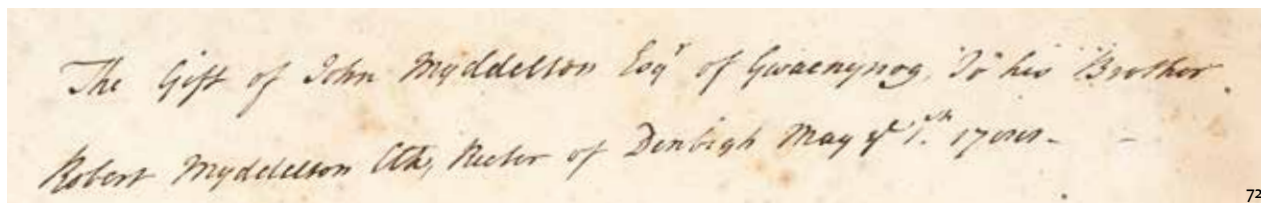 The Gift of John Myddelton Esqr of Gwaenynog, To his Brother.
Robert Myddelton Clk, Rector of Denbigh May ye 1st
72